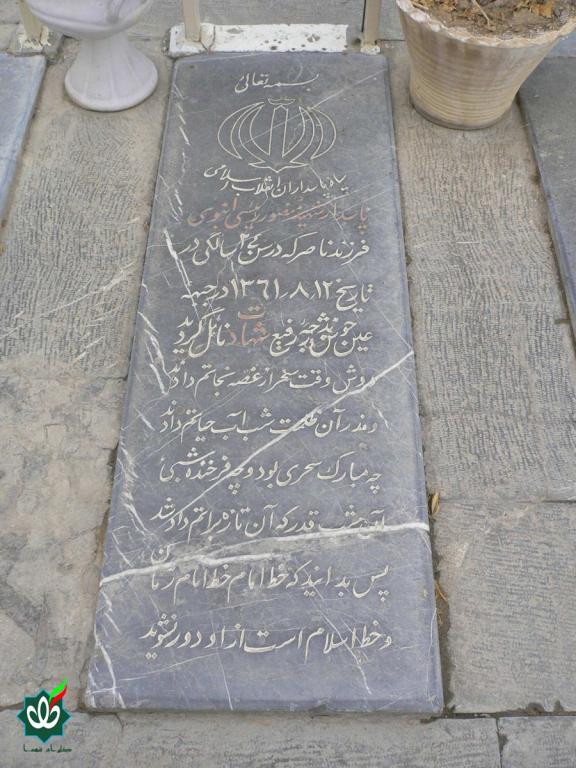 بسمه تعالی
سپاه پاسداران انقلاب اسلامی
پاسدار شهید منصور رئیسی
فرزند ناصر که در سن سالگی در
تاریخ ۱۳۶۱/۸/۱۲ در جبهه
عین خوش به درجه رفیع شهادت نائل گردید
دوش وقت سحر از غصه نجاتم دادند
وندر آن ظلمت شب آب حیاتم دادند
چه مبارک سحری بود و چه فرخنده شبی
آن شب قدر که این تازه براتم دادند
پس بدانید که خط امام خط امام زمان
و خط اسلام است از او دور نشوید